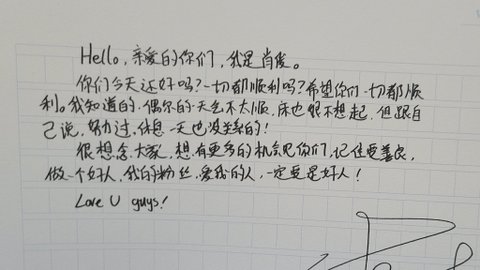 Hello,亲爱的你们,我是肖俊。
你们今天还好吗?一切都顺利吗?希望你们一切都顺
利。我知道的,偶尔的天气不太顺,床也很不想起,但跟自
己说,努力过,休息一天也没关系的!
很想念大家,想有更多的机会见你们,记住要善良,
做一个好人,我的粉丝,爱我的人,一定要是好人!
Love U guys!